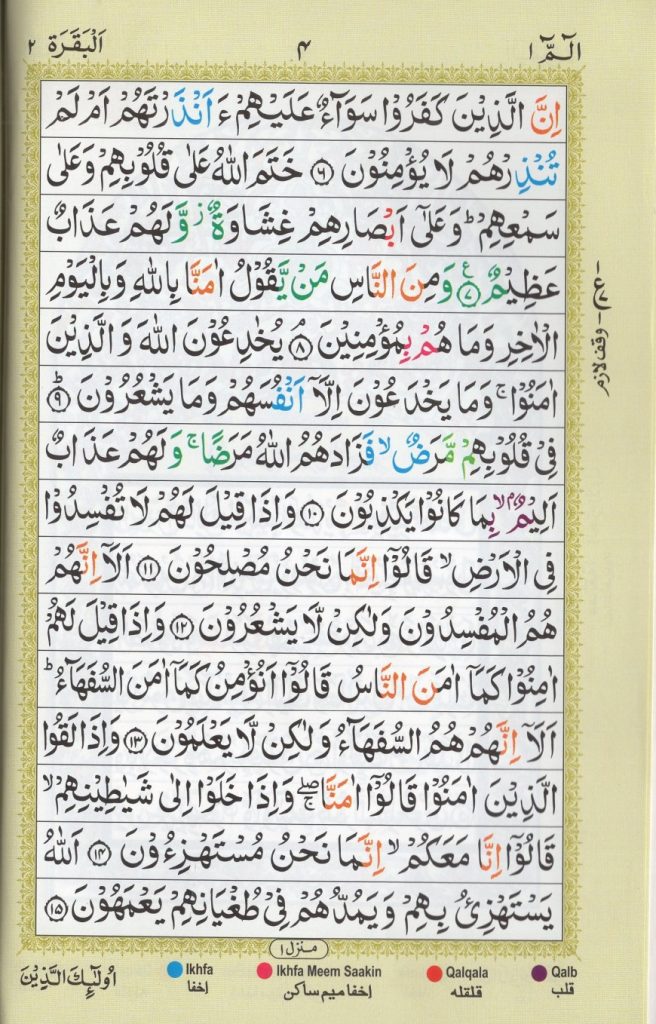 الٓمّٓ ١ ۴ اَلْبَقَرَة ٢
اِنَّ الَّذِيْنَ كَفَرُوْا سَوَآءٌ عَلَيْهِمْ ءَاَنْذَرْتَهُمْ اَمْ لَمْ
تُنْذِرْهُمْ لَا يُؤْمِنُوْنَ ۝۶ خَتَمَ اللّٰهُ عَلٰى قُلُوْبِهِمْ وَعَلٰى
سَمْعِهِمْ ؕ وَعَلٰٓى اَبْصَارِهِمْ غِشَاوَةٌ ؗ وَّلَهُمْ عَذَابٌ
عَظِيْمٌ ۝۷ ع وَمِنَ النَّاسِ مَنْ يَّقُوْلُ اٰمَنَّا بِاللّٰهِ وَبِالْيَوْمِ
الْاٰخِرِ وَمَا هُمْ بِمُؤْمِنِيْنَ ۝۸ۘ يُخٰدِعُوْنَ اللّٰهَ وَالَّذِيْنَ
اٰمَنُوْا ۚ وَمَا يَخْدَعُوْنَ اِلَّاۤ اَنْفُسَهُمْ وَمَا يَشْعُرُوْنَ ۝۹ؕ
فِيْ قُلُوْبِهِمْ مَّرَضٌ ۙ فَزَادَهُمُ اللّٰهُ مَرَضًا ۚ وَلَهُمْ عَذَابٌ
اَلِيْمٌۢ ۙ بِمَا كَانُوْا يَكْذِبُوْنَ ۝۱۰ وَاِذَا قِيْلَ لَهُمْ لَا تُفْسِدُوْا
فِي الْاَرْضِ ۙ قَالُوْۤا اِنَّمَا نَحْنُ مُصْلِحُوْنَ ۝۱۱ اَلَاۤ اِنَّهُمْ
هُمُ الْمُفْسِدُوْنَ وَلٰكِنْ لَّا يَشْعُرُوْنَ ۝۱۲ وَاِذَا قِيْلَ لَهُمْ
اٰمِنُوْا كَمَاۤ اٰمَنَ النَّاسُ قَالُوْۤا اَنُؤْمِنُ كَمَاۤ اٰمَنَ السُّفَهَآءُ ؕ
اَلَاۤ اِنَّهُمْ هُمُ السُّفَهَآءُ وَلٰكِنْ لَّا يَعْلَمُوْنَ ۝۱۳ وَاِذَا لَقُوا
الَّذِيْنَ اٰمَنُوْا قَالُوْۤا اٰمَنَّا ۖۚ وَاِذَا خَلَوْا اِلٰى شَيٰطِيْنِهِمْ ۙ
قَالُوْۤا اِنَّا مَعَكُمْ ۙ اِنَّمَا نَحْنُ مُسْتَهْزِءُوْنَ ۝۱۴ اَللّٰهُ
يَسْتَهْزِئُ بِهِمْ وَيَمُدُّهُمْ فِيْ طُغْيَانِهِمْ يَعْمَهُوْنَ ۝۱۵
وقف لازم
منزل ١
اُولٰٓئِكَ الَّذِيْنَ
Ikhfa Ikhfa Meem Saakin Qalqala Qalb
إخفا إخفا ميم ساكن قلقله قلب